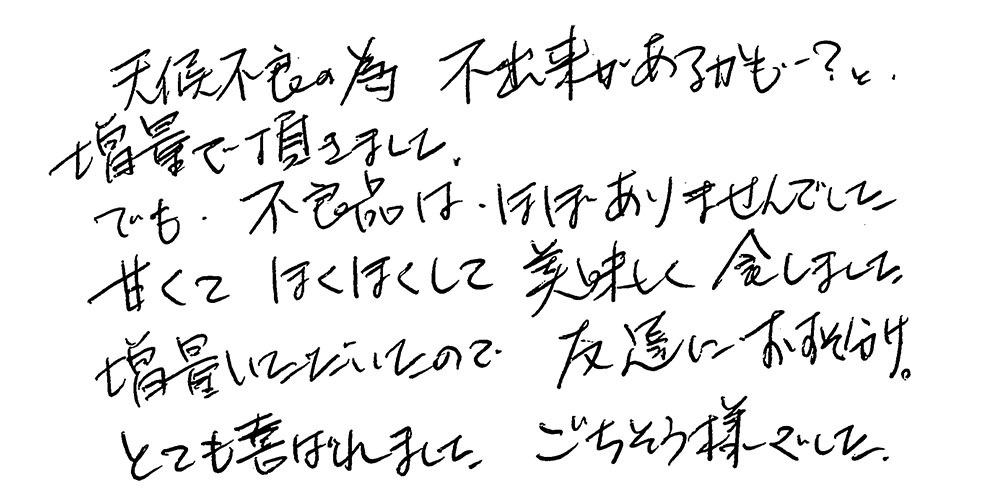 天候不良の為 不出来があるかも―?と、
増量で頂きました。
でも、不良品は、ほぼありませんでした
甘くて ほくほくして 美味しく 食しました。
増量いただいたので 友達におすそ分け。
とても喜ばれました。 ごちそう様でした。